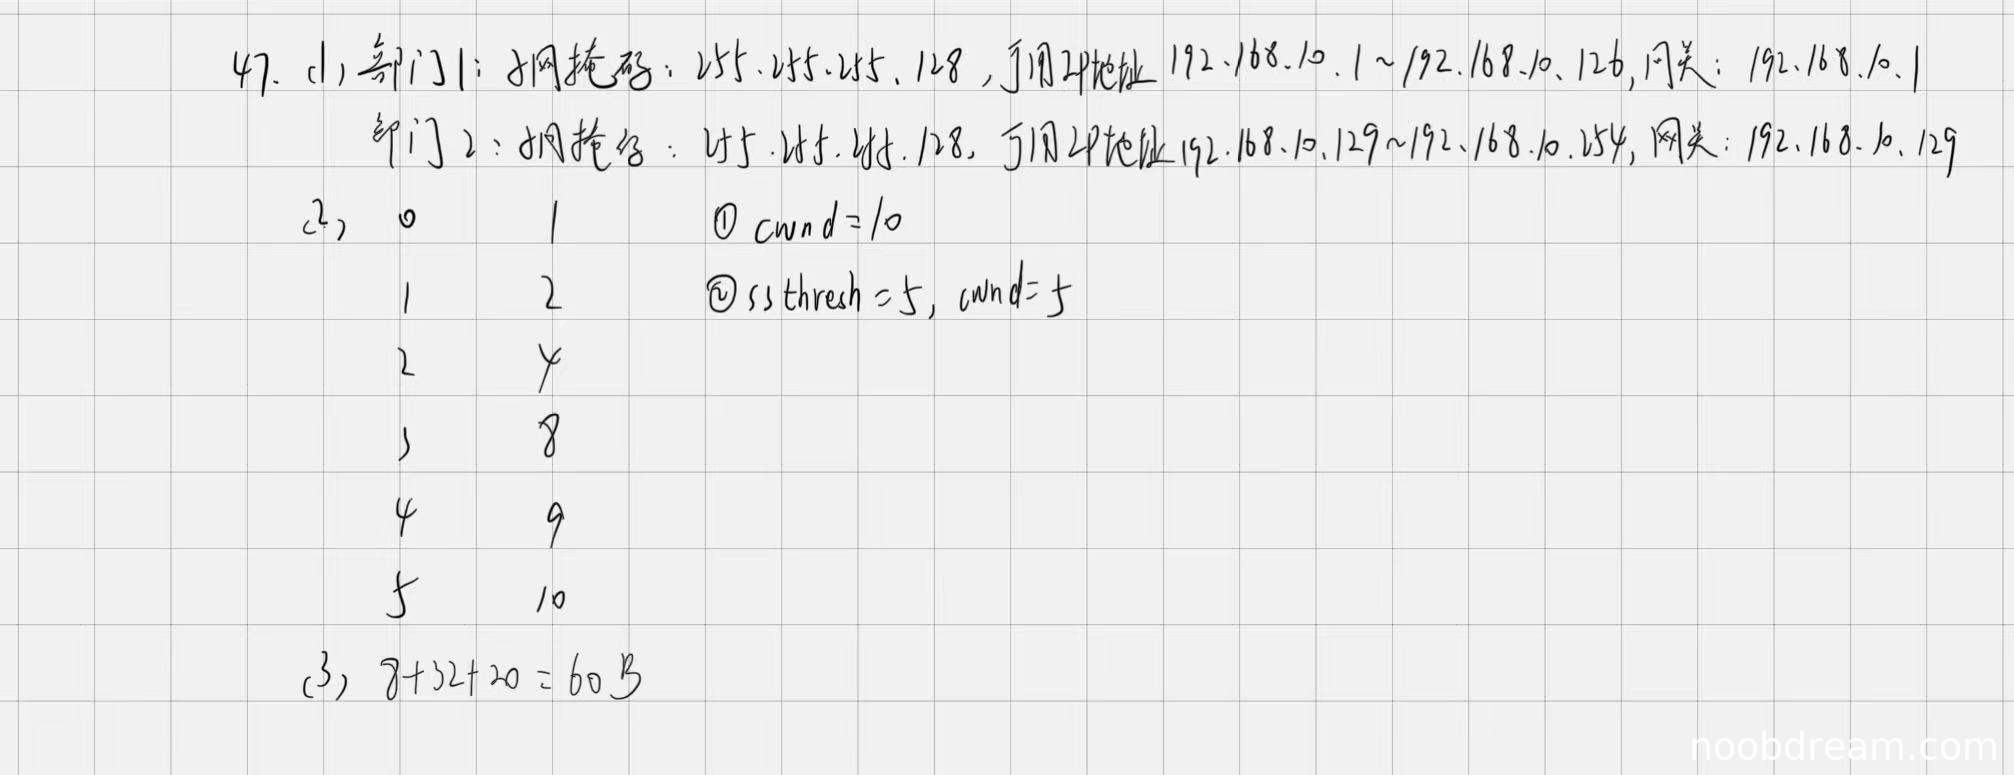 47. (1) 部门1: 子网掩码: 255.255.255.128, 可用IP地址 192.168.10.1~192.168.10.126, 网关: 192.168.10.1
部门2: 子网掩码: 255.255.255.128, 可用IP地址 192.168.10.129~192.168.10.254, 网关: 192.168.10.129
(2) 0 1 ① cwnd=10
1 2 ② ssthresh=5, cwnd=5
2 4
3 8
4 9
5 10
(3) 8+32+20=60B
noobdream.com